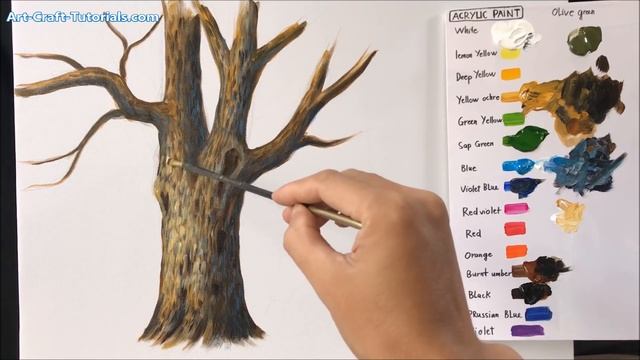 Art-Craft-Tutorials.com
ACRYLIC PAINT
Olive green
White
lemon Yellow
Deep Yellow
Yellow ochre
Green Yellow
Sap Green
Blue
Violet Blue
Red violet
Red
Orange
Burnt umber
Black
PRussian Blue
violet